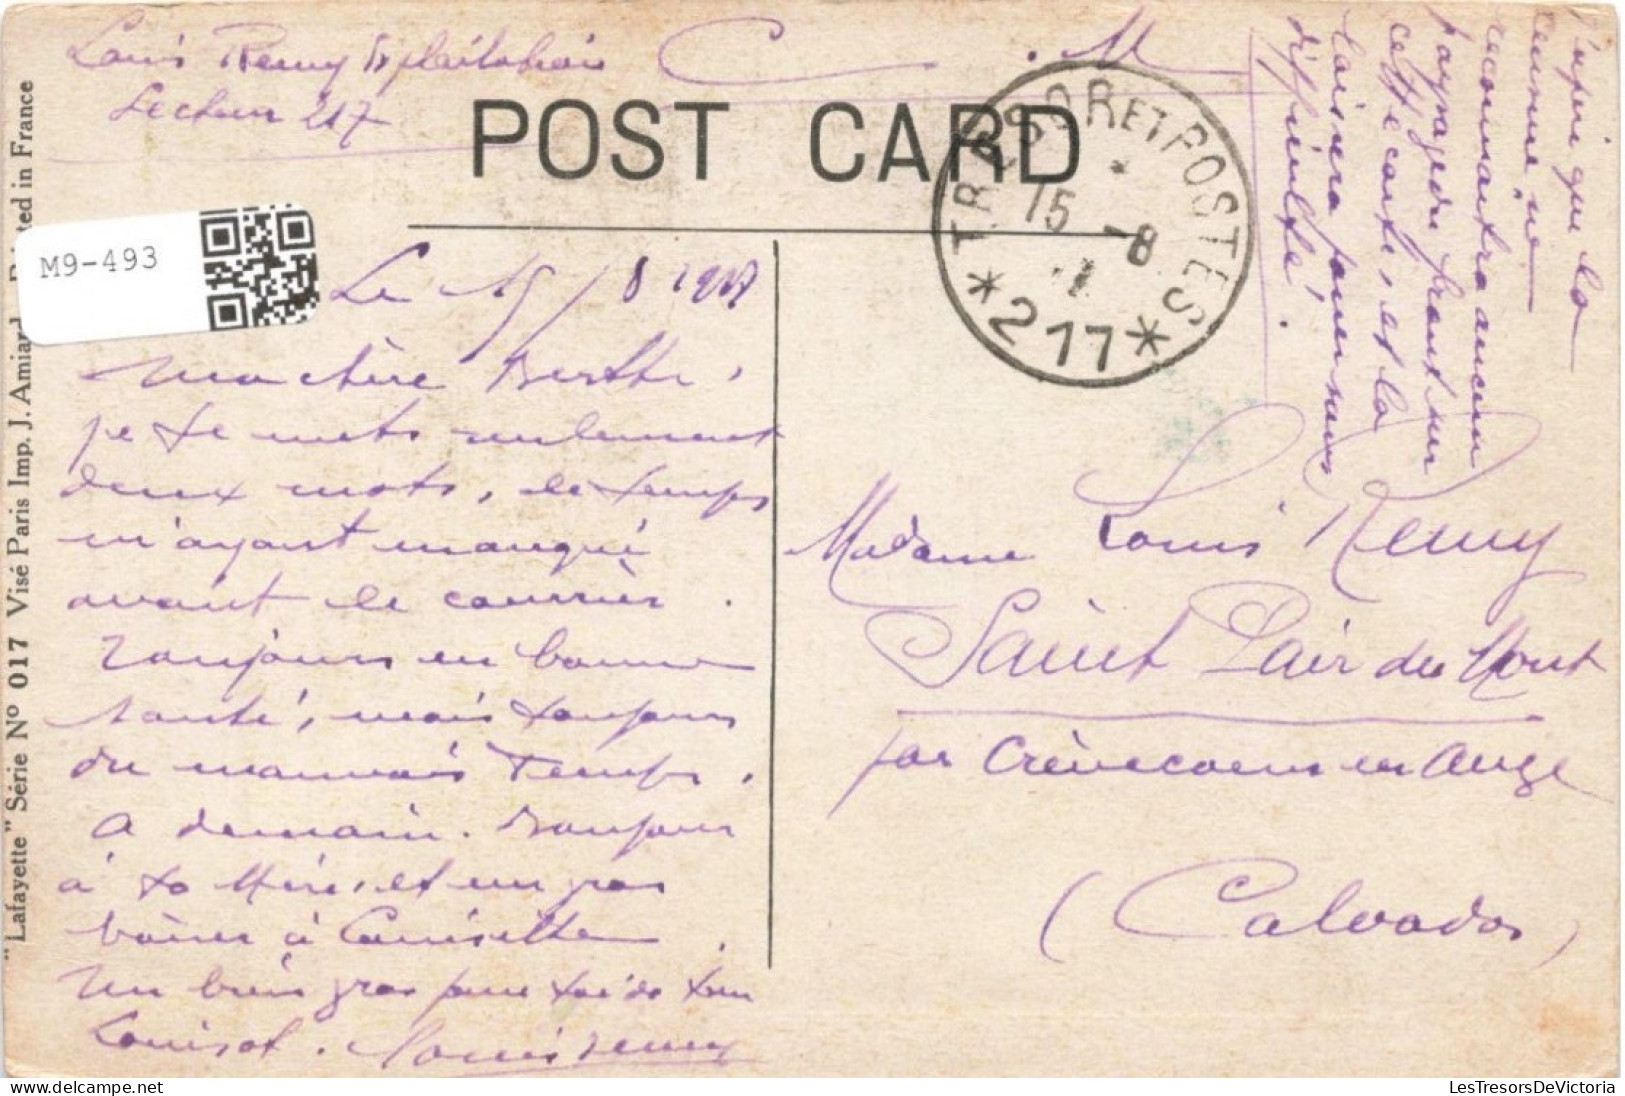 Louis Remy Exploitation C . M
Secteur 217
POST CARD
TRESOR ET POSTES
15 -8
*217*
M9-493
"Lafayette" Série No 017 Visé Paris Imp. J. Amiard Printed in France
Le 15/8 1917
ma chère Berthe,
je te mets seulement
deux mots, le temps
m'ayant manqué
avant le courrier.
Toujours en bonne
santé, mais toujours
du mauvais Temps.
A demain. Bonjour
à ta Mère, et un gros
baiser à Louisette.
Un bien gros pour toi de ton
Louisot. Louis Remy
J'espère que la
censure ne
reconnaitra aucun
paysage du front sur
cette carte, et la
laissera passer sans
difficulté.
Madame Louis Remy
Saint Lair du Mont
par Crèvecoeur en Auge
(Calvados)
LesTresorsDeVictoria